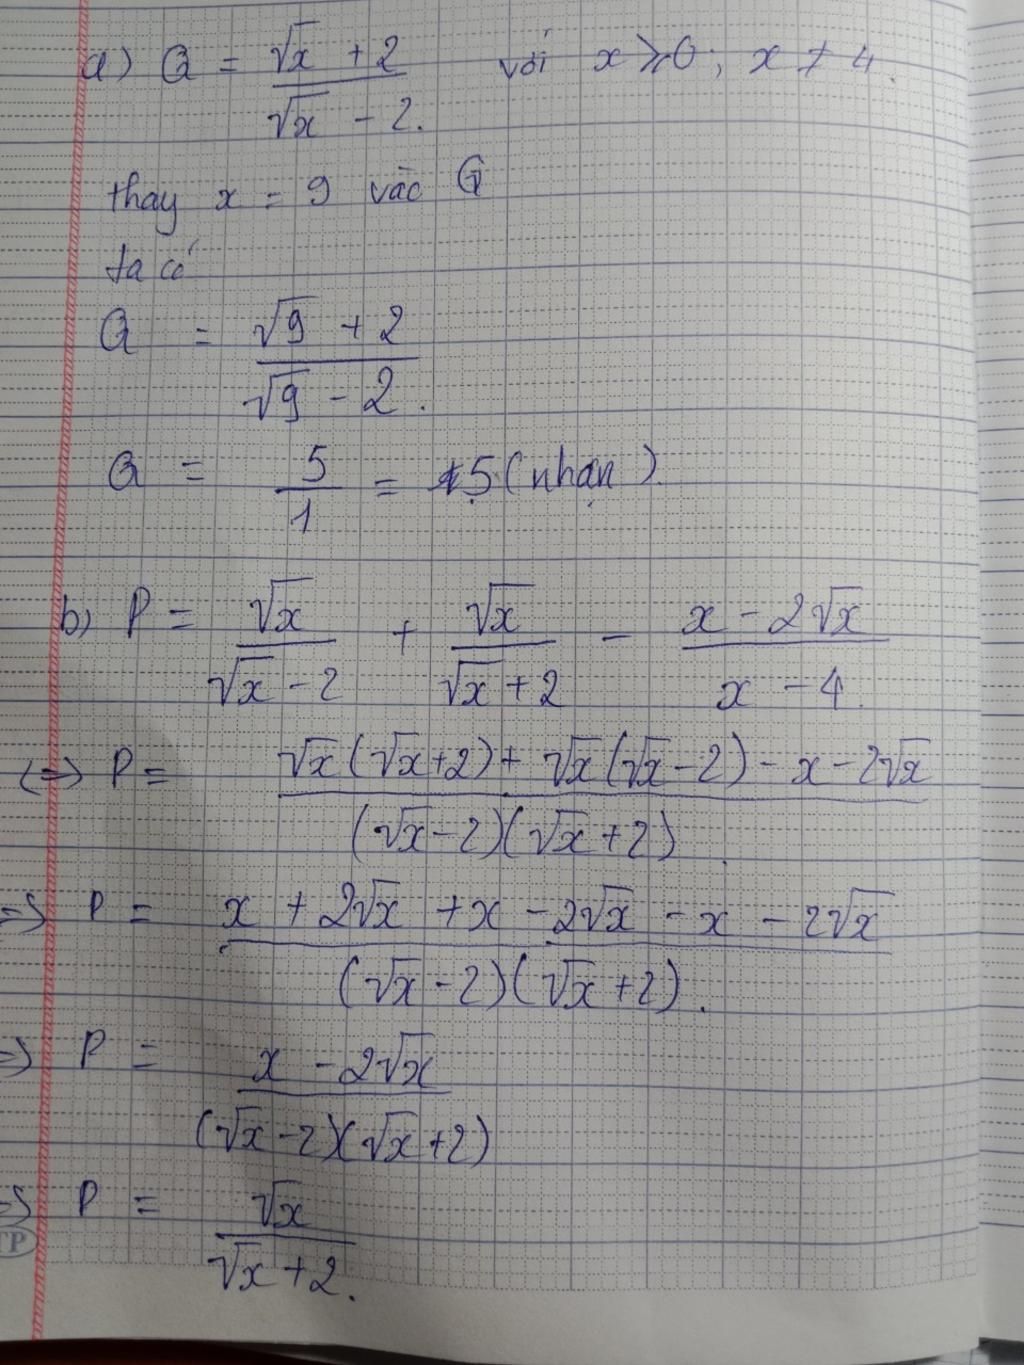 a) Q = (√x + 2)/(√x - 2). với x ≥ 0; x ≠ 4.
thay x = 9 vào Q
ta có
Q = (√9 + 2)/(√9 - 2).
Q = 5/1 = 5 (nhận).
b) P = √x/(√x - 2) + √x/(√x + 2) - (x - 2√x)/(x - 4).
(=) P = (√x(√x+2) + √x(√x-2) - x - 2√x)/((√x-2)(√x+2)).
=) P = (x + 2√x + x - 2√x - x - 2√x)/((√x-2)(√x+2)).
=) P = (x - 2√x)/((√x-2)(√x+2))
=) P = √x/(√x + 2).
TP